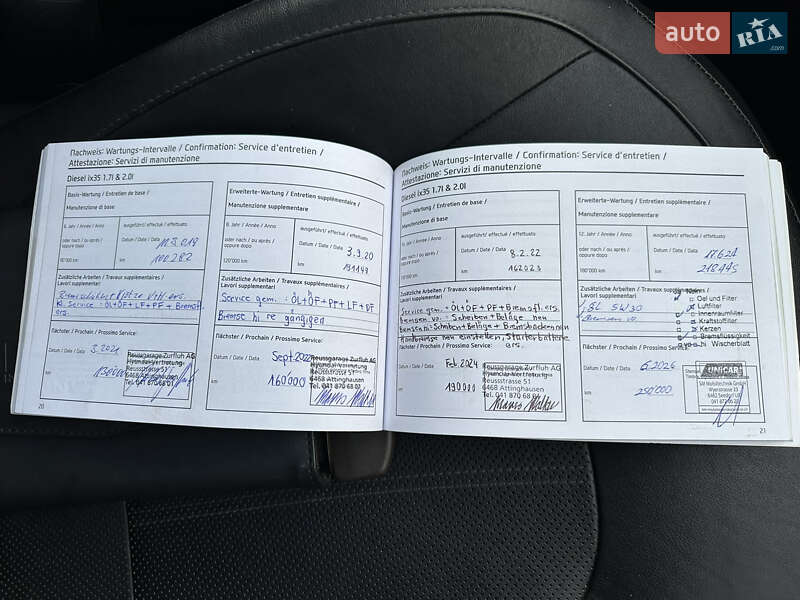 auto RIA.com
Nachweis: Wartungs-Intervalle / Confirmation: Service d'entretien /
Attestazione: Servizi di manutenzione
Diesel ix35 1.7l & 2.0l
Basis-Wartung / Entretien de base /
Manutenzione di base
6. Jahr / Année / Anno
ausgeführt/ effectué / effettuato
oder nach / ou après /
oppure dopo
Datum / Date / Data
90'000 km
km 100282
Zusätzliche Arbeiten / Travaux supplémentaires /
Lavori supplementari
kl. Service : ÖL+ÖF+LF+PF+Bremsfl.
ers.
Nächster / Prochain / Prossimo Service:
Datum / Date / Data 3.2021
km 130000
Reussgarage Zurfluh AG
Hyundai-Vertretung
Reussstrasse 51
6468 Attinghausen
Tel. 041 870 68 03
20
Erweiterte-Wartung / Entretien supplémentaires /
Manutenzione supplementare
8. Jahr / Année / Anno
ausgeführt/ effectué / effettuato
oder nach / ou après /
oppure dopo
Datum / Date / Data 3.9.20
120'000 km
km 131149
Zusätzliche Arbeiten / Travaux supplémentaires /
Lavori supplementari
Service gem. : ÖL+ÖF+PF+LF+DF
Bremse hi re gängigen
Nächster / Prochain / Prossimo Service:
Datum / Date / Data Sept. 2022
km 160000
Reussgarage Zurfluh AG
Hyundai-Vertretung
Reussstrasse 51
6468 Attinghausen
Tel. 041 870 68 03
Nachweis: Wartungs-Intervalle / Confirmation: Service d'entretien /
Attestazione: Servizi di manutenzione
Diesel ix35 1.7l & 2.0l
Basis-Wartung / Entretien de base /
Manutenzione di base
10. Jahr / Année / Anno
ausgeführt/ effectué / effettuato
oder nach / ou après /
oppure dopo
Datum / Date / Data 8.2.22
150'000 km
km 162023
Zusätzliche Arbeiten / Travaux supplémentaires /
Lavori supplementari
Service gem. : ÖL+ÖF+PF+Bremsfl. ers.
bremsen vo. : Scheiben+Beläge neu
bremsen hi : Scheiben+Beläge+Bremsbackennen
Handbremse neu einstellen, Starterbatterie
ers.
Nächster / Prochain / Prossimo Service:
Datum / Date / Data Feb. 2024
km 190000
Reussgarage Zurfluh AG
Hyundai-Vertretung
Reussstrasse 51
6468 Attinghausen
Tel. 041 870 68 03
Erweiterte-Wartung / Entretien supplémentaires /
Manutenzione supplementare
12. Jahr / Année / Anno
ausgeführt/ effectué / effettuato
oder nach / ou après /
oppure dopo
Datum / Date / Data
180'000 km
km 218445
Zusätzliche Arbeiten / Travaux supplémentaires /
Lavori supplementari
5W30
Ja Nein
Oel und Filter
Luftfilter
Innenraumfilter
Kraftstoffilter
Kerzen
Bremsflüssigkeit
Wischerblatt
Nächster / Prochain / Prossimo Service:
Datum / Date / Data 6.2026
km 250'000
UNICAR
6462 Seedorf UR
041 872 06 20
21